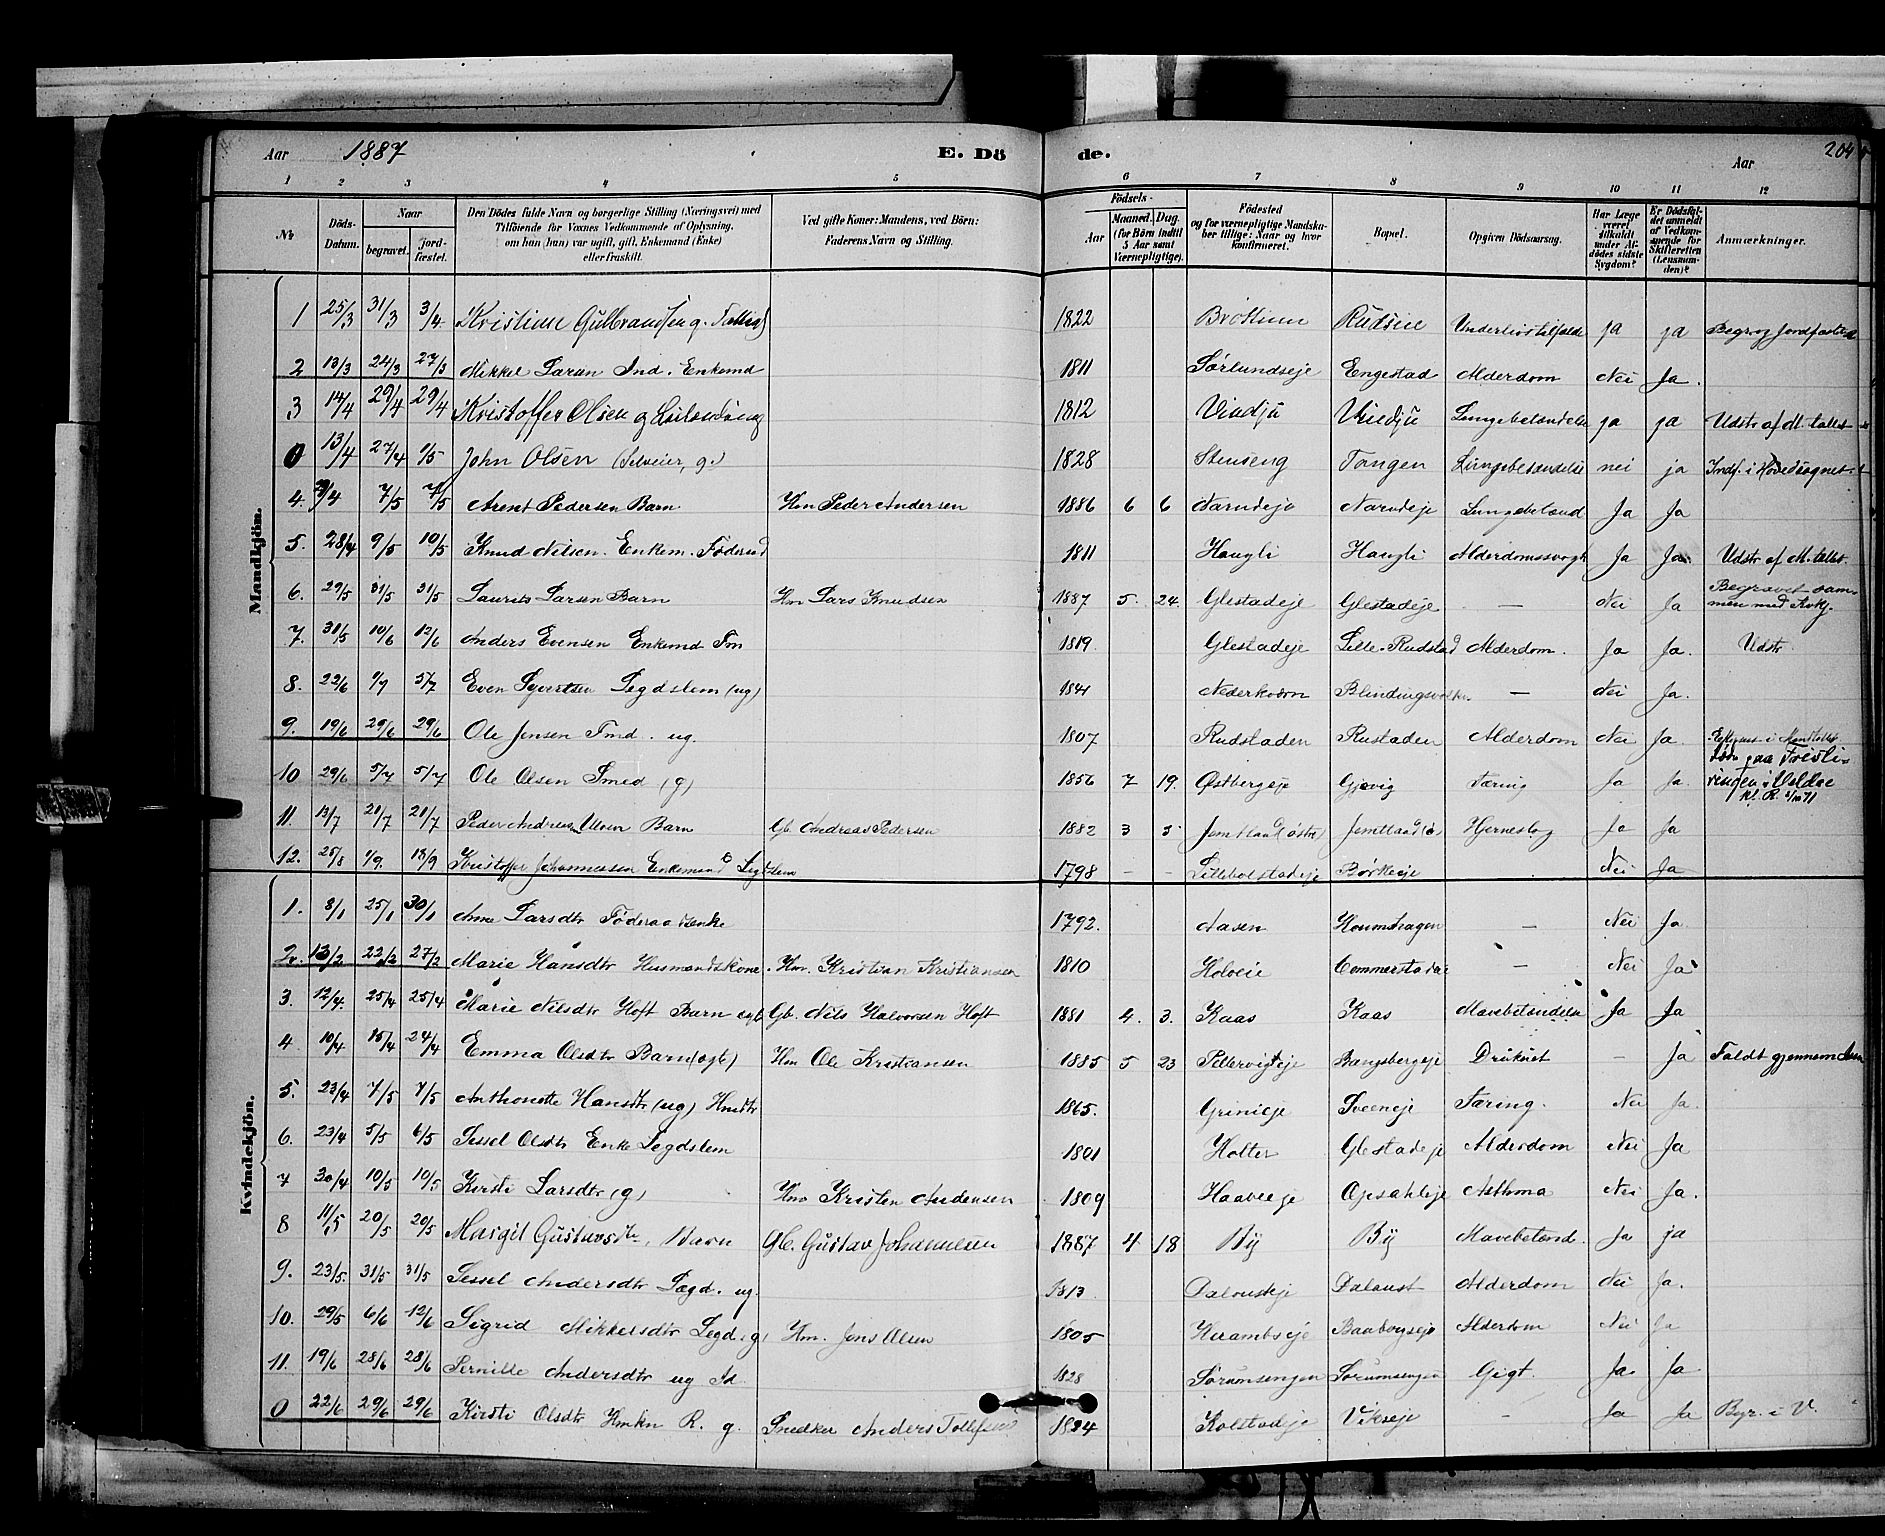 Aar 1887 E. Dö de. Aar 204
1 2 3 4 5 6 7 8 9 10 11 12
No. Döds-Datum. Naar begravet. jordfæstet. Den Dödes fulde Navn og borgerlige Stilling (Næringsvei) med Tilföiende for Voxnes Vedkommende af Oplysning, om han (hun) var ugift, gift, Enkemand (Enke) eller fraskilt. Ved gifte Koner: Mandens, ved Börn: Faderens Navn og Stilling. Födsels- Aar Maaned. Dag. (for Börn indtil 5 Aar samt Værnepligtige). Födested og for værnepligtige Mandskaber tillige: Naar og hvor konfirmeret. Bopæl. Opgiven Dödsaarsag. Har Læge været tilkaldt under Afdödes sidste Sygdom? Er Dödsfaldet anmeldt af Vedkommende for Skifteretten (Lensmanden)? Anmærkninger.
Mandkjön.
1 25/3 31/3 3/4 Gulbrandsen g. 1822 Brøttum Rudseie Underlivstilfælde ja ja Begr. og jordfæstet
2 13/3 24/3 27/3 Mikkel Larsen Ind. Enkemd 1811 Sørlundseje Engestad Alderdom Nei Ja.
3 14/4 29/4 29/4 Kristoffer Olsen g 1812 Lungebetændelse ja ja Udstr af M. tallet
0 13/4 27/4 1/5 John Olsen (Selveier, g.) 1828 Stenseng Tangen Lungebetændelse nei ja Indf. i Hovedsognet
4. 7/5 7/5 Arent Pedersen Barn Hm Peder Andersen 1886 6 6 Narudeje Narudeje Lungebetænd Ja Ja
5. 28/4 9/5 10/5 Knud Nilsen. Enkem. Føderaad 1811 Haugli Haugli Alderdomssvagh Ja Ja Udstr af M. tallet
6. 29/5 31/5 31/5 Laurits Larsen Barn Hm Lars Knudsen 1887 5. 24. Glestadeje Glestadeje — Nei Ja Begravet sammen med
7. 31/5 10/6 12/6 Anders Evensen Enkemd Im 1819. Glestadeje Lille-Rudstad Alderdom. Ja Ja. Udstr
8. 22/6 1/7 3/7 Even Syvertsen Legdslem (ug) 1841 Nederkvern — Nei Ja.
9. 19/6 29/6 29/6 Ole Jensen Tmd. ug. 1807 Rudstaden Rustaden Alderdom Nei Ja.
10 29/6 5/7 5/7 Ole Olsen Smed (g) 1856 7 19. Østbergeje Gjøvig Tæring Ja Ja.
11. 13/7 21/7 21/7 Peder Andreas Ulven Barn Gb. Andreas Pedersen 1882 3 5 Jemtland (østre) Jemtland (ø Hjerneslag Ja Ja
12. 25/8 1/9. 18/9 Kristoffer Johannessen Enkemand Legdslem 1798 — — Lillebolstadeje Børkeeje Nei Ja
Kvindekjön.
1. 8/1 25/1 30/1 Anne Larsdtr Føderaadsenke 1792. Aasen — Nei Ja
2. 13/2 22/2 27/2 Marie Hansdtr Husmandskone. Hm. Kristian Kristiansen 1810 Holoeie — Nei Ja
3. 12/4. 25/4 25/4 Marie Nilsdtr Hoft Barn ægt Gb. Nils Halvorsen Hoft 1881 4. 3. Kaas Kaas Mavebetændelse Ja Ja
4. 10/4 15/4 24/4 Emma Olsdtr Barn (ægt) Hm Ole Kristiansen 1885 5 23 Bangsbergeje Druknet — Ja Faldt gjennem Isen
5. 23/4 7/5 7/5 Anthonette Hansdtr (ug) Hmdtr 1865. Grinieje Sveeneje Tæring. Nei Ja.
6. 23/4 5/5 6/5 Sessel Olsdtr Enke Legdslem 1801 Holter Glestadeje Alderdom Nei Ja
7 30/4 10/5 10/5 Kirsti Larsdtr (g) Hm Kristen Andersen 1809 Opsahleje Asthma Nei Ja.
8 11/5 20/5 20/5 Margit Gustavsdtr, Barn Gb. Gustav Johannesen 1887 4 18 By By Mavebetænd. Ja ja
9. 23/5. 31/5 31/5 Sessel Andersdtr Lægd. ug. 1813 Dalousteje Daloust Alderdom Nei Ja.
10. 29/5 6/6 12/6 Sigrid Mikkelsdtr Legd. (g) Hm. Jens Olsen 1805 Alderdom Nei Ja
11. 19/6 28/6 28/6 Pernille Andersdtr ug Id 1828 Sørumsengen Sørumsengen Gigt. Ja Ja
0 22/6 29/6 29/6 Kirsti Olsdtr Hmkn R. g. Snedker Anders Tollefsen 1824 Kolstadeje Vikseje — Ja Ja Byr. i V.